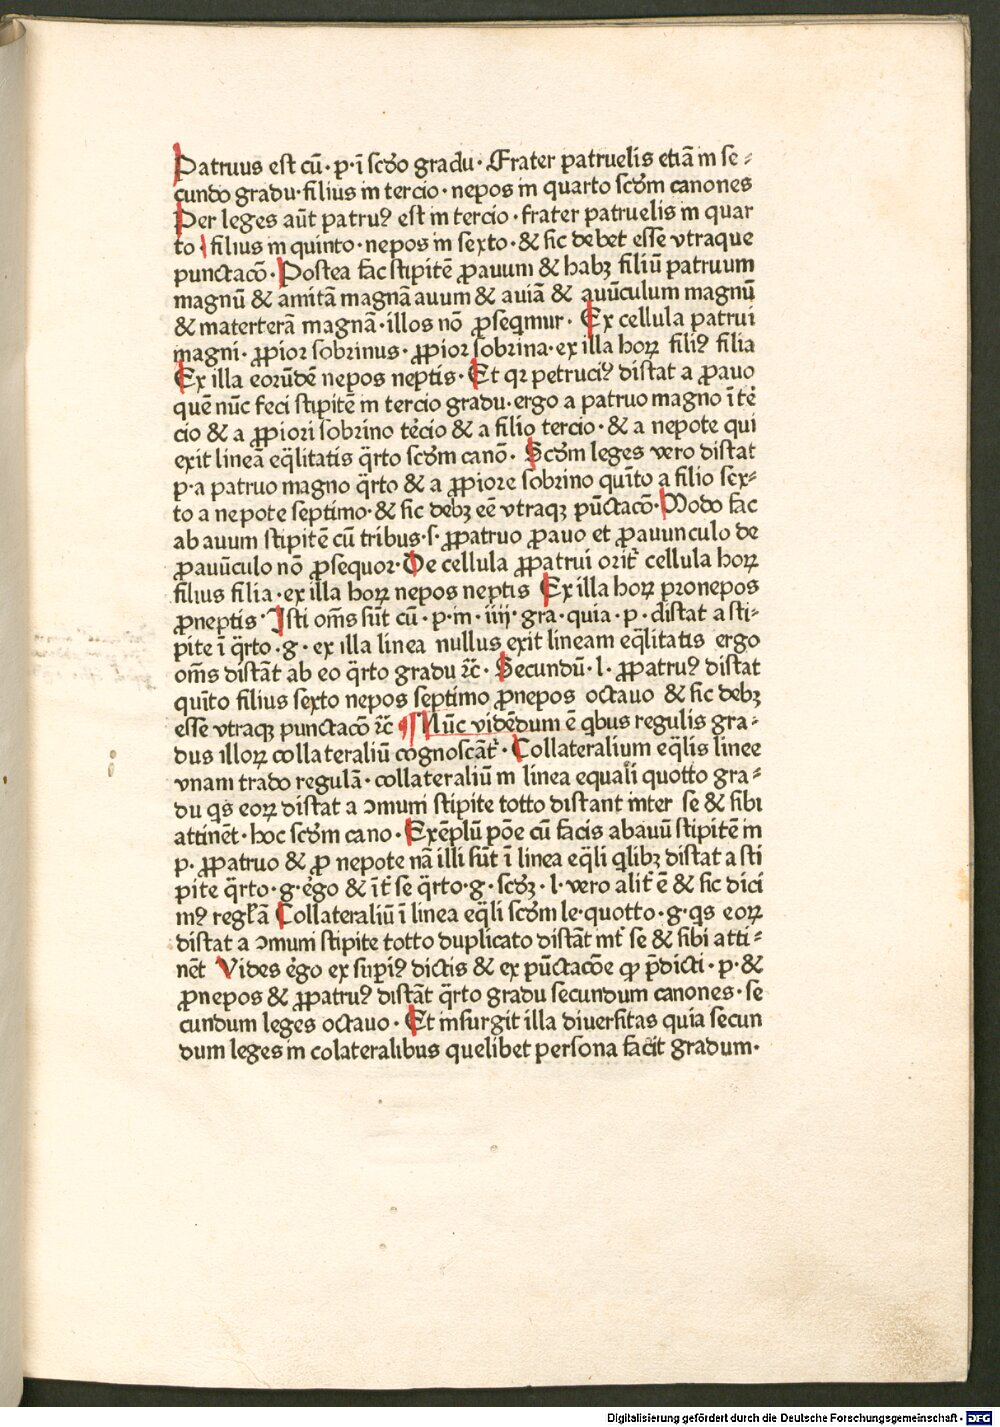 Patruus est cū · p · ī scd̄o gradu · Frater patruelis etiā in se⸗
cundo gradu · filius in tercio · nepos in quarto scd̄m canones
Per leges aūt patruꝰ est in tercio · frater patruelis in quar
to · filius in quinto · nepos in sexto · & sic debet esse vtraque
punctacō · Postea fac stipitē ꝓauum & habꝫ filiū patruum
magnū & amitā magnā auum & auiā & auūculum magnū
& materterā magnā · illos nō ꝓseqmur · Ex cellula patrui
magni · ꝓpior sobrinus · ꝓpior sobrina · ex illa hoꝝ filiꝰ filia
Ex illa eorūdē nepos neptis · Et qꝛ petruciꝰ distat a ꝓauo
quē nūc feci stipitē in tercio gradu · ergo a patruo magno ī te᷑
cio & a ꝓpiori sobrino te᷑cio & a filio tercio · & a nepote qui
exit lineā eq̄litatis q̄rto scd̄m canō · Scd̄m leges vero distat
p · a patruo magno q̄rto & a ꝓpiore sobrino quīto a filio sex⸗
to a nepote septimo · & sic debꝫ eē vtraqꝫ pūctacō · Modo fac
ab auum stipitē cū tribus · s · ꝓpatruo ꝓauo et ꝓauunculo de
ꝓauūculo nō ꝓsequor · De cellula ꝓpatrui orit᷑ cellula hoꝝ
filius filia · ex illa hoꝝ nepos neptis Ex illa hoꝝ pronepos
ꝓneptis · Isti om̄s sūt cū · p · in · iiij · gra · quia · p · distat a sti⸗
pite ī q̄rto · g · ex illa linea nullus exit lineam eq̄litatis ergo
om̄s distāt ab eo q̄rto gradu ꝛc̄ · Secundū · l · ꝓpatruꝰ distat
quīto filius sexto nepos septimo ꝓnepos octauo & sic debꝫ
esse vtraqꝫ punctacō ꝛc̄ ¶ Nūc vidēdum ē qbus regulis gra⸗
dus illoꝝ collateraliū cognoscāt᷑ · Collateralium eq̄lis linee
vnam trado regulā · collateraliū in linea equali quotto gra⸗
du qs eoꝝ distat a ↄmuni stipite totto distant inter se & sibi
attinēt · hoc scd̄m cano · Exēplū pōe cū facis abauū stipitē in
p · ꝓpatruo & ꝓ nepote nā illi sūt ī linea eq̄li qlibꝫ distat a sti
pite q̄rto · g · e᷑go & īt᷑ se q̄rto · g · scd̄ꝫ · l · vero alit᷑ ē & sic dici
mꝰ regl̄ā Collateraliū ī linea eq̄li scd̄m le · quotto · g · qs eoꝝ
distat a ↄmuni stipite totto duplicato distāt int᷑ se & sibi atti⸗
nēt Vides e᷑go ex supiꝰ dictis & ex pūctacōe ꝙ p̄dicti · p · &
ꝓnepos & ꝓpatruꝰ distāt q̄rto gradu secundum canones · se
cundum leges octauo · Et insurgit illa diuersitas quia secun
dum leges in colateralibus quelibet persona facit gradum ·
Digitalisierung gefördert durch die Deutsche Forschungsgemeinschaft · DFG